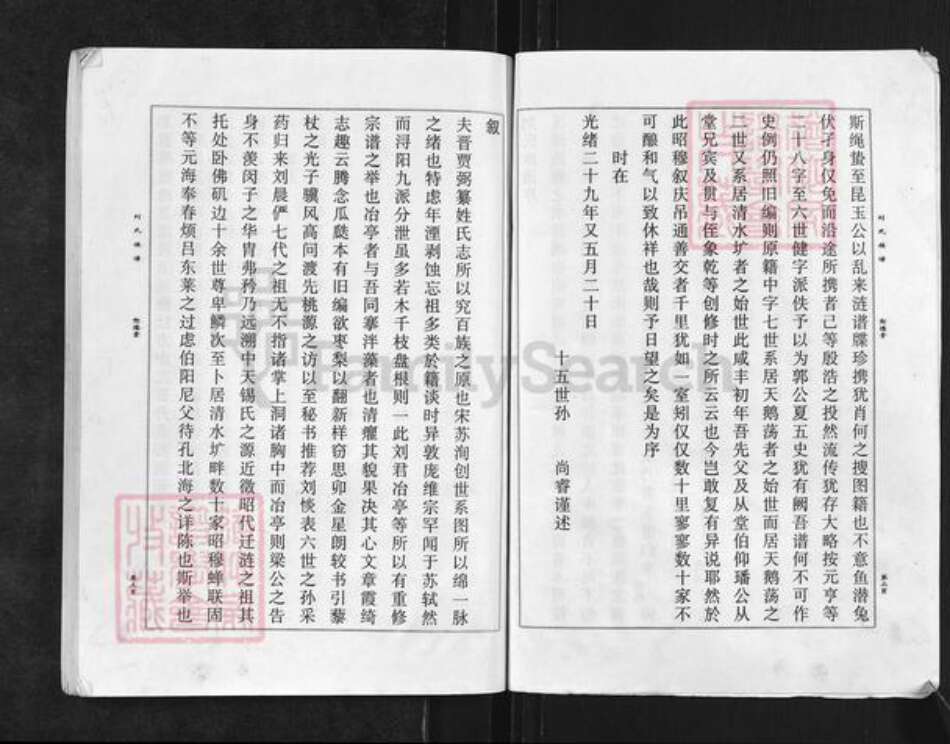 斯绳蛰至昆玉公以乱来涟谱牒珍携犹肖何之搜图籍也不意鱼潜兔
伏孑身仅免而沿途所携者已等殷浩之投然流传犹存大略按元亨等
二十八字至六世健字派佚予以为郭公夏五史犹有阙吾谱何不可作
史例仍照旧编则原籍中字七世系居天鹅荡者之始世而居天鹅荡之
二世又系居清水圹者之始世此咸丰初年吾先父及从堂伯仰璠公从
堂兄宾及贯与侄象乾等创修时之所云云也今岂敢复有异说耶然於
此昭穆叙庆吊通善交者千里犹如一室矧仅仅数十里寥寥数十家不
可酿和气以致休祥也哉则予日望之矣是为序
时在
光绪二十九年又五月二十日
十五世孙 尚睿谨述
刘氏族谱
叙
夫晋贾弼纂姓氏志所以究百族之原也宋苏洵创世系图所以绵一脉
之绪也特虑年湮剥蚀忘祖多类於籍谈时异敦庞维宗罕闻于苏轼然
而浔阳九派分泄虽多若木千枝盘根则一此刘君冶亭等所以有重修
宗谱之举也冶亭者与吾同搴泮藻者也清癯其貌果决其心文章霞绮
志趣云腾念瓜瓞本有旧编欲枣梨以翻新样窃思卯金星朗较书引藜
杖之光子骥风高问渡先桃源之访以至秘书推荐刘惔表六世之孙采
药归来刘晨俨七代之祖无不指诸掌上洞诸胸中而冶亭则梁公之告
身不羡闵子之华胄弗矜乃远溯中天锡氏之源近徵昭代迁涟之祖其
托处卧佛矶边十余世尊卑鳞次至卜居清水圹畔数十家昭穆蝉联固
不等元海奉春烦吕东莱之过虑伯阳尼父待孔北海之详陈也斯举也
刘氏族谱
FamilySearch